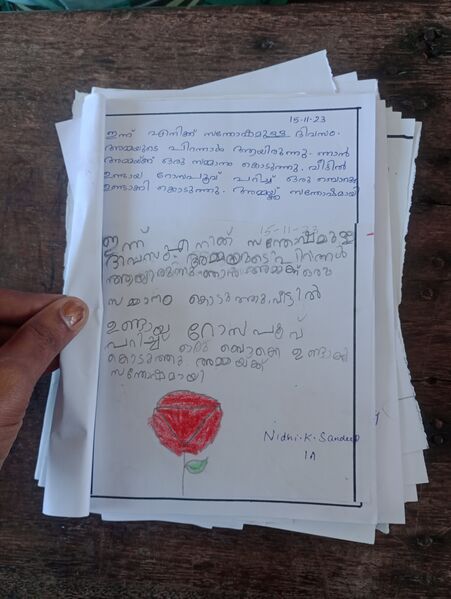 15-11-23
ഇന്ന് എനിക്ക് സന്തോഷമുള്ള ദിവസം.
അമ്മയുടെ പിറന്നാൾ ആയിരുന്നു. ഞാൻ
അമ്മയ്ക്ക് ഒരു സമ്മാനം കൊടുത്തു. വീട്ടിൽ
ഉണ്ടായ റോസപൂവ് പറിച്ച് ഒരു ബൊക്കെ
ഉണ്ടാക്കി കൊടുത്തു. അമ്മയ്ക്ക് സന്തോഷമായി
15-11-23
ഇന്ന് എനിക്ക് സന്തോഷമുള്ള
ദിവസം. അമ്മയുടെ പിറന്നാൾ
ആയിരുന്നു ഞാൻ അമ്മക്ക് ഒരു
സമ്മാനം കൊടുത്തു. വീട്ടിൽ
ഉണ്ടായ റോസപൂവ്
പറിച്ച് ഒരു ബൊക്കെ ഉണ്ടാക്കി
കൊടുത്തു അമ്മയ്ക്ക്
സന്തോഷമായി
Nidhi.K.Sandeep
1A